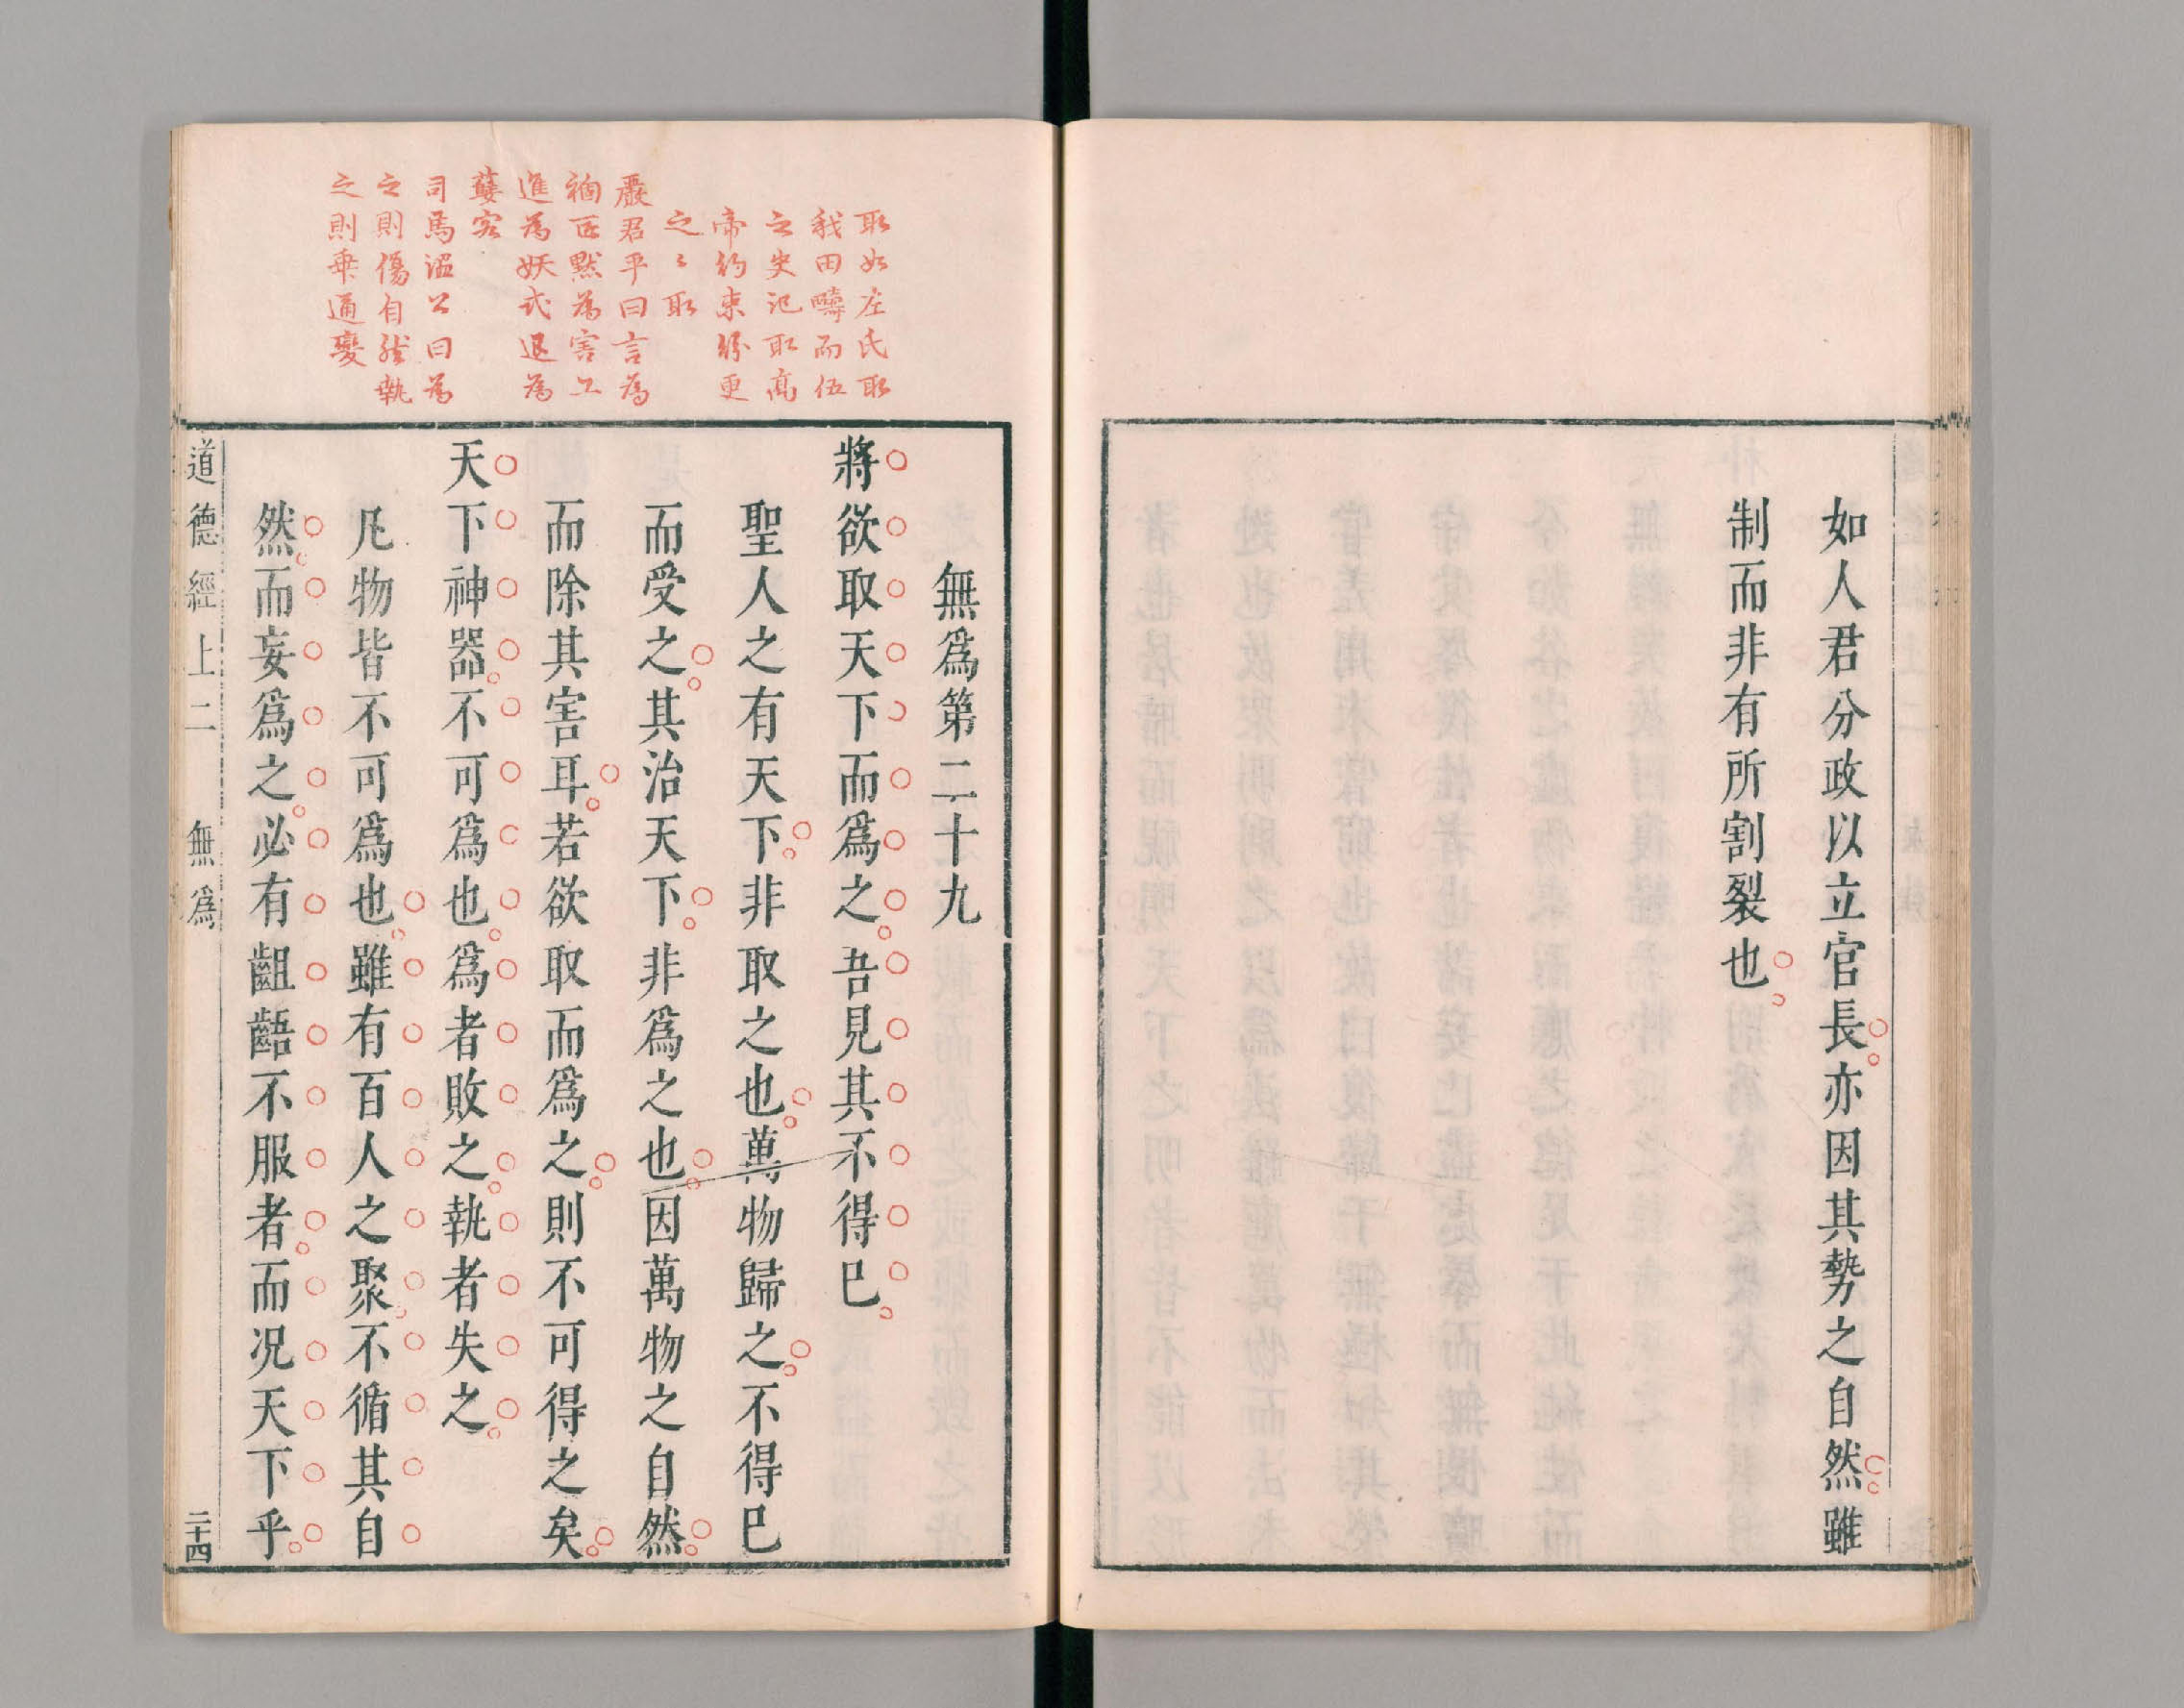 如人君分政以立官長亦因其勢之自然雖
制而非有所割裂也
取如左氏取
我田疇而伍
之史記取高
帝約束紛更
之之取
嚴君平曰言為
進為妖式退為
司馬溫公曰為
之則傷自然執
之則乗通變
無爲第二十九
將欲取天下而爲之吾見其不得已
聖人之有天下非取之也萬物歸之不得已
而受之其治天下非爲之也因萬物之自然
而除其害耳若欲取而爲之則不可得之矣
天下神器不可爲也爲者敗之執者失之
凡物皆不可爲也雖有百人之聚不循其自
然而妄爲之必有齟齬不服者而况天下乎
道德經上二 無爲 二十四